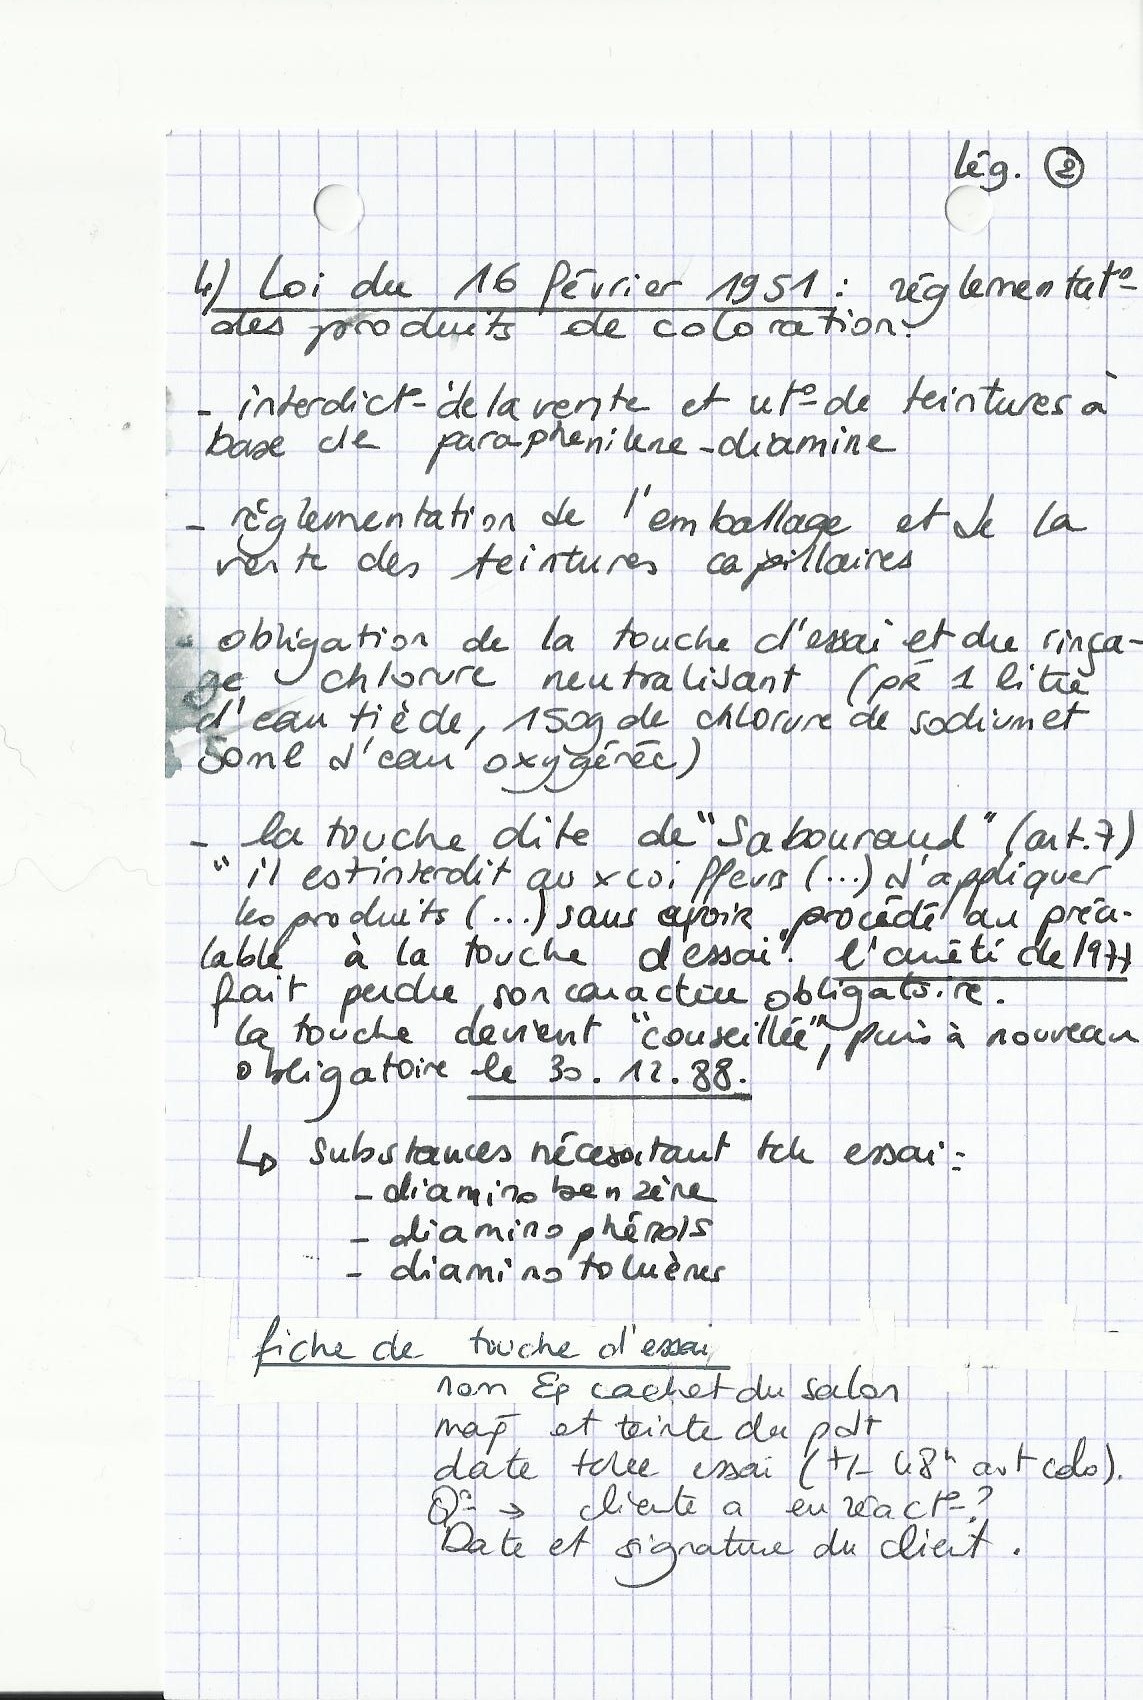 lég. ②
4) Loi du 16 février 1951 : réglementat°
des produits de coloration.
- interdict° de la vente et ut° de teintures à
base de paraphenilene-diamine
- règlementation de l'emballage et de la
vente des teintures capillaires
- obligation de la touche d'essai et du rinça-
ge chlorure neutralisant (pr 1 litre
d'eau tiède, 150g de chlorure de sodium et
50ml d'eau oxygénée)
- la touche dite de "Sabouraud" (art.7)
" il est interdit aux coiffeurs (...) d'appliquer
les produits (...) sans avoir procédé au préa-
lable à la touche d'essai". l'arrêté de 1977
fait perdre son caractère obligatoire.
la touche devient "conseillée", puis à nouveau
obligatoire le 30.12.88.
↳ substances nécessitant tch essai :
- diamino benzène
- diamino phénols
- diamino toluènes
fiche de touche d'essai
nom Ep cachet du salon
marq et teinte du pdt
date tche essai (+/- 48h avt colo).
Q° → cliente a eu réact° ?
Date et signature du client.